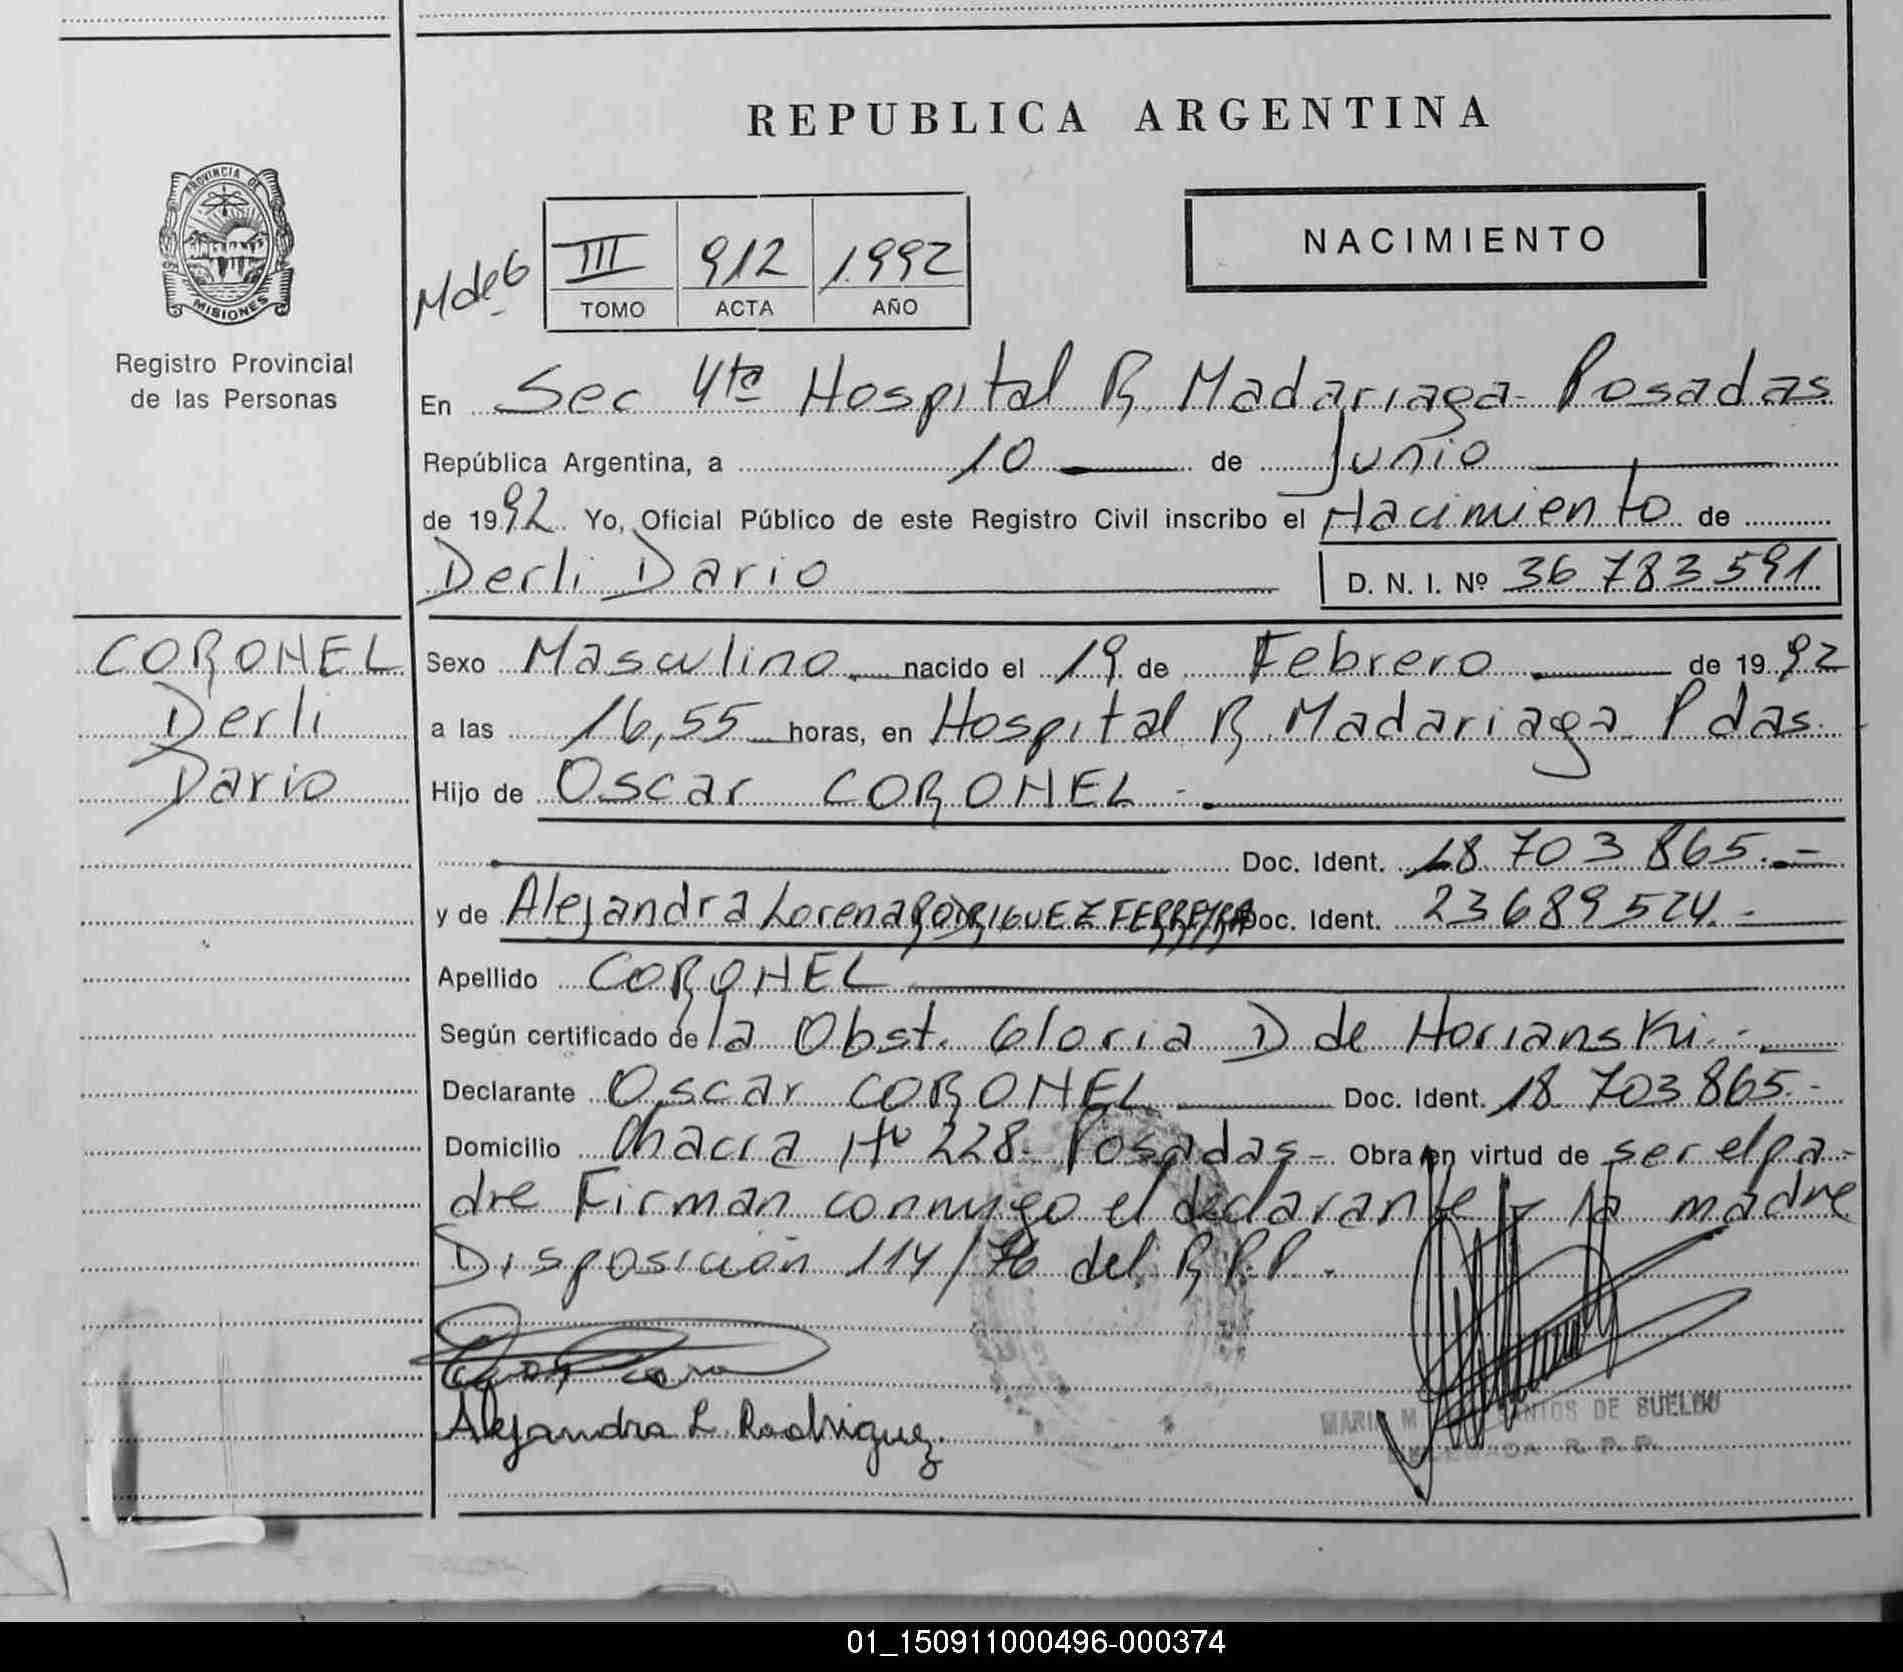 REPUBLICA ARGENTINA
PROVINCIA DE
MISIONES
Registro Provincial
de las Personas
M de G
III 912 1992
TOMO ACTA AÑO
NACIMIENTO
En Sec 4ta Hospital R Madariaga - Posadas
República Argentina, a 10 de Junio
de 1992. Yo, Oficial Público de este Registro Civil inscribo el Nacimiento de
Derli Dario D. N. I. Nº 36 783 591
CORONEL
Derli
Dario
Sexo Masculino nacido el 19 de Febrero de 1992
a las 16,55 horas, en Hospital R Madariaga Pdas.
Hijo de Oscar CORONEL -
Doc. Ident. 18 703 865.-
y de Alejandra Lorena RODRIGUEZ FERREYRA Doc. Ident. 23689524.-
Apellido CORONEL
Según certificado de la Obst. Gloria D de Horianski.-
Declarante Oscar CORONEL Doc. Ident. 18 703 865.-
Domicilio Chacra Nº 228- Posadas- Obra en virtud de ser el pa-
dre Firman conmygo el declarante y la madre
Disposición 114/76 del R.P.P.
Alejandra L Rodriguez.
MARIA M DE SUELDO
R. P. P.
01_150911000496-000374